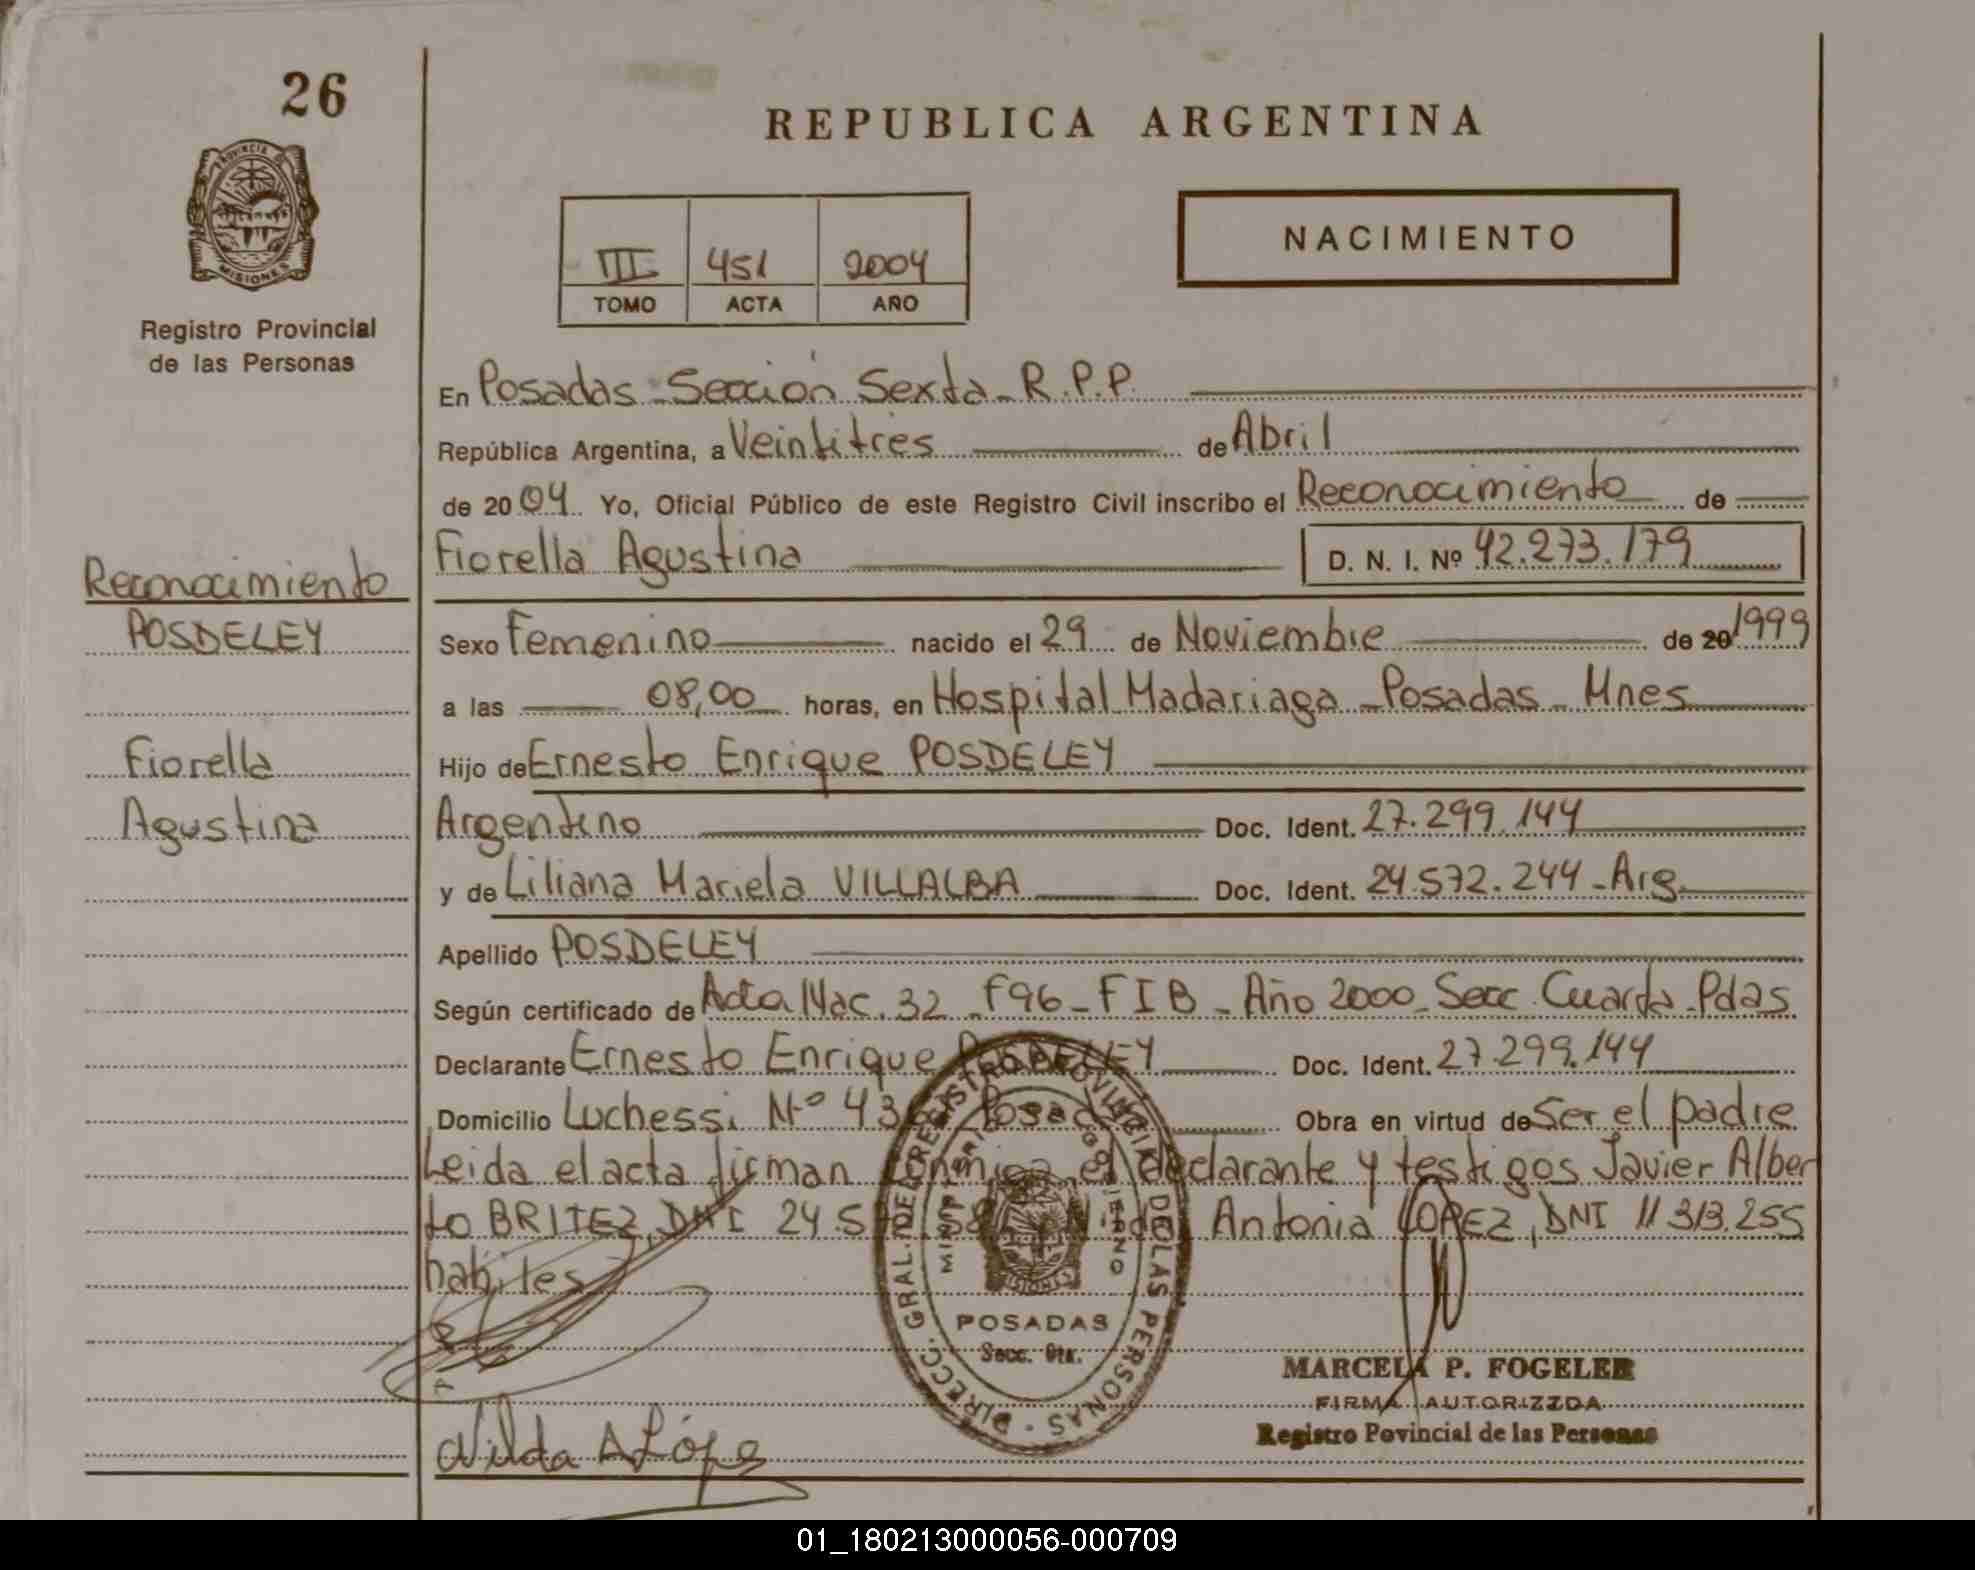 26
PROVINCIA DE
MISIONES
Registro Provincial
de las Personas
REPUBLICA ARGENTINA
III 451 2004
TOMO ACTA AÑO
NACIMIENTO
En Posadas - Sección Sexta - R.P.P.
República Argentina, a Veintitres de Abril
de 2004 Yo, Oficial Público de este Registro Civil inscribo el Reconocimiento de
Fiorella Agustina D. N. I. Nº 42.273.179
Reconocimiento
POSDELEY
Fiorella
Agustina
Sexo Femenino nacido el 29 de Noviembre de 20 1999
a las 08,00 horas, en Hospital Madariaga - Posadas - Mnes
Hijo de Ernesto Enrique POSDELEY
Argentino Doc. Ident. 27.299.144
y de Liliana Mariela VILLALBA Doc. Ident. 24.572.244 - Arg.
Apellido POSDELEY
Según certificado de Acta Nac. 32 - F96 - F I B - Año 2000 - Secc. Cuarta - Pdas
Declarante Ernesto Enrique POSDELEY Doc. Ident. 27.299.144
Domicilio Luchessi Nº Posadas Obra en virtud de Ser el padre
Leida el acta firman conmigo el declarante y testigos Javier Alber
to BRITEZ, DNI Nilda Antonia LOPEZ, DNI 11.313.255
habiles
DIRECC. GRAL. DEL REGISTRO PROVINCIAL DE LAS PERSONAS
MINISTERIO GOBIERNO
MISIONES
POSADAS
Secc. 6ta.
MARCELA P. FOGELER
FIRMA AUTORIZZDA
Registro Povincial de las Personas
Nilda A López
01_180213000056-000709